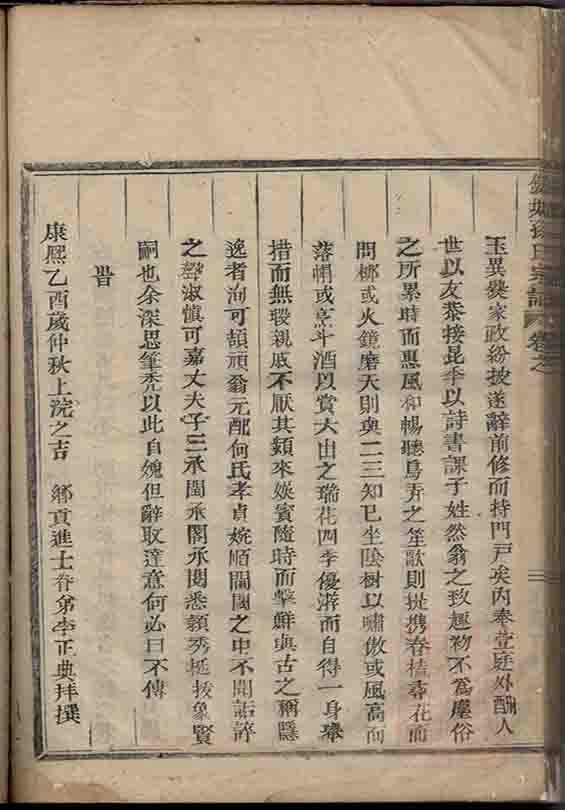 玉異爨家政紛披遂辭前修而持門戶矣內奉萱庭外酬人
世以友恭接昆季以詩書課子姓然翁之致趣初不爲塵俗
之所累時而惠風和暢聽鳥弄之笙歌則提携春榼尋花而
問柳或火鏡磨天則與二三知已坐陰樹以嘯傲或風高而
落帽或烹斗酒以賞大由之瑞花四季優游而自得一身舉
措而無瑕親戚不厭其頻來娛賓隨時而擊鮮與古之稱隱
逸者洵可頡頏翁元配何氏孝貞婉順閫閾之中不聞詬誶
之聲淑慎可嘉丈夫子三承閶承閣承閱悉穎秀挺拔象賢
嗣也余深思筆禿以此自媿但辭取達意何必曰不傳
旹
康熙乙酉歲仲秋上浣之吉 鄉貢進士眷弟李正典拜撰
孫氏宗譜 卷之